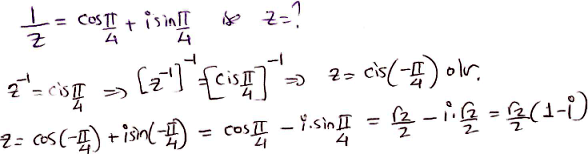 1/z = cos π/4 + i sin π/4 ise z=?
z⁻¹ = cis π/4 ⇒ [z⁻¹]⁻¹ = [cis π/4]⁻¹ ⇒ z = cis(-π/4) olur.
z = cos(-π/4) + isin(-π/4) = cos π/4 - i.sin π/4 = √2/2 - i.√2/2 = √2/2 (1-i)